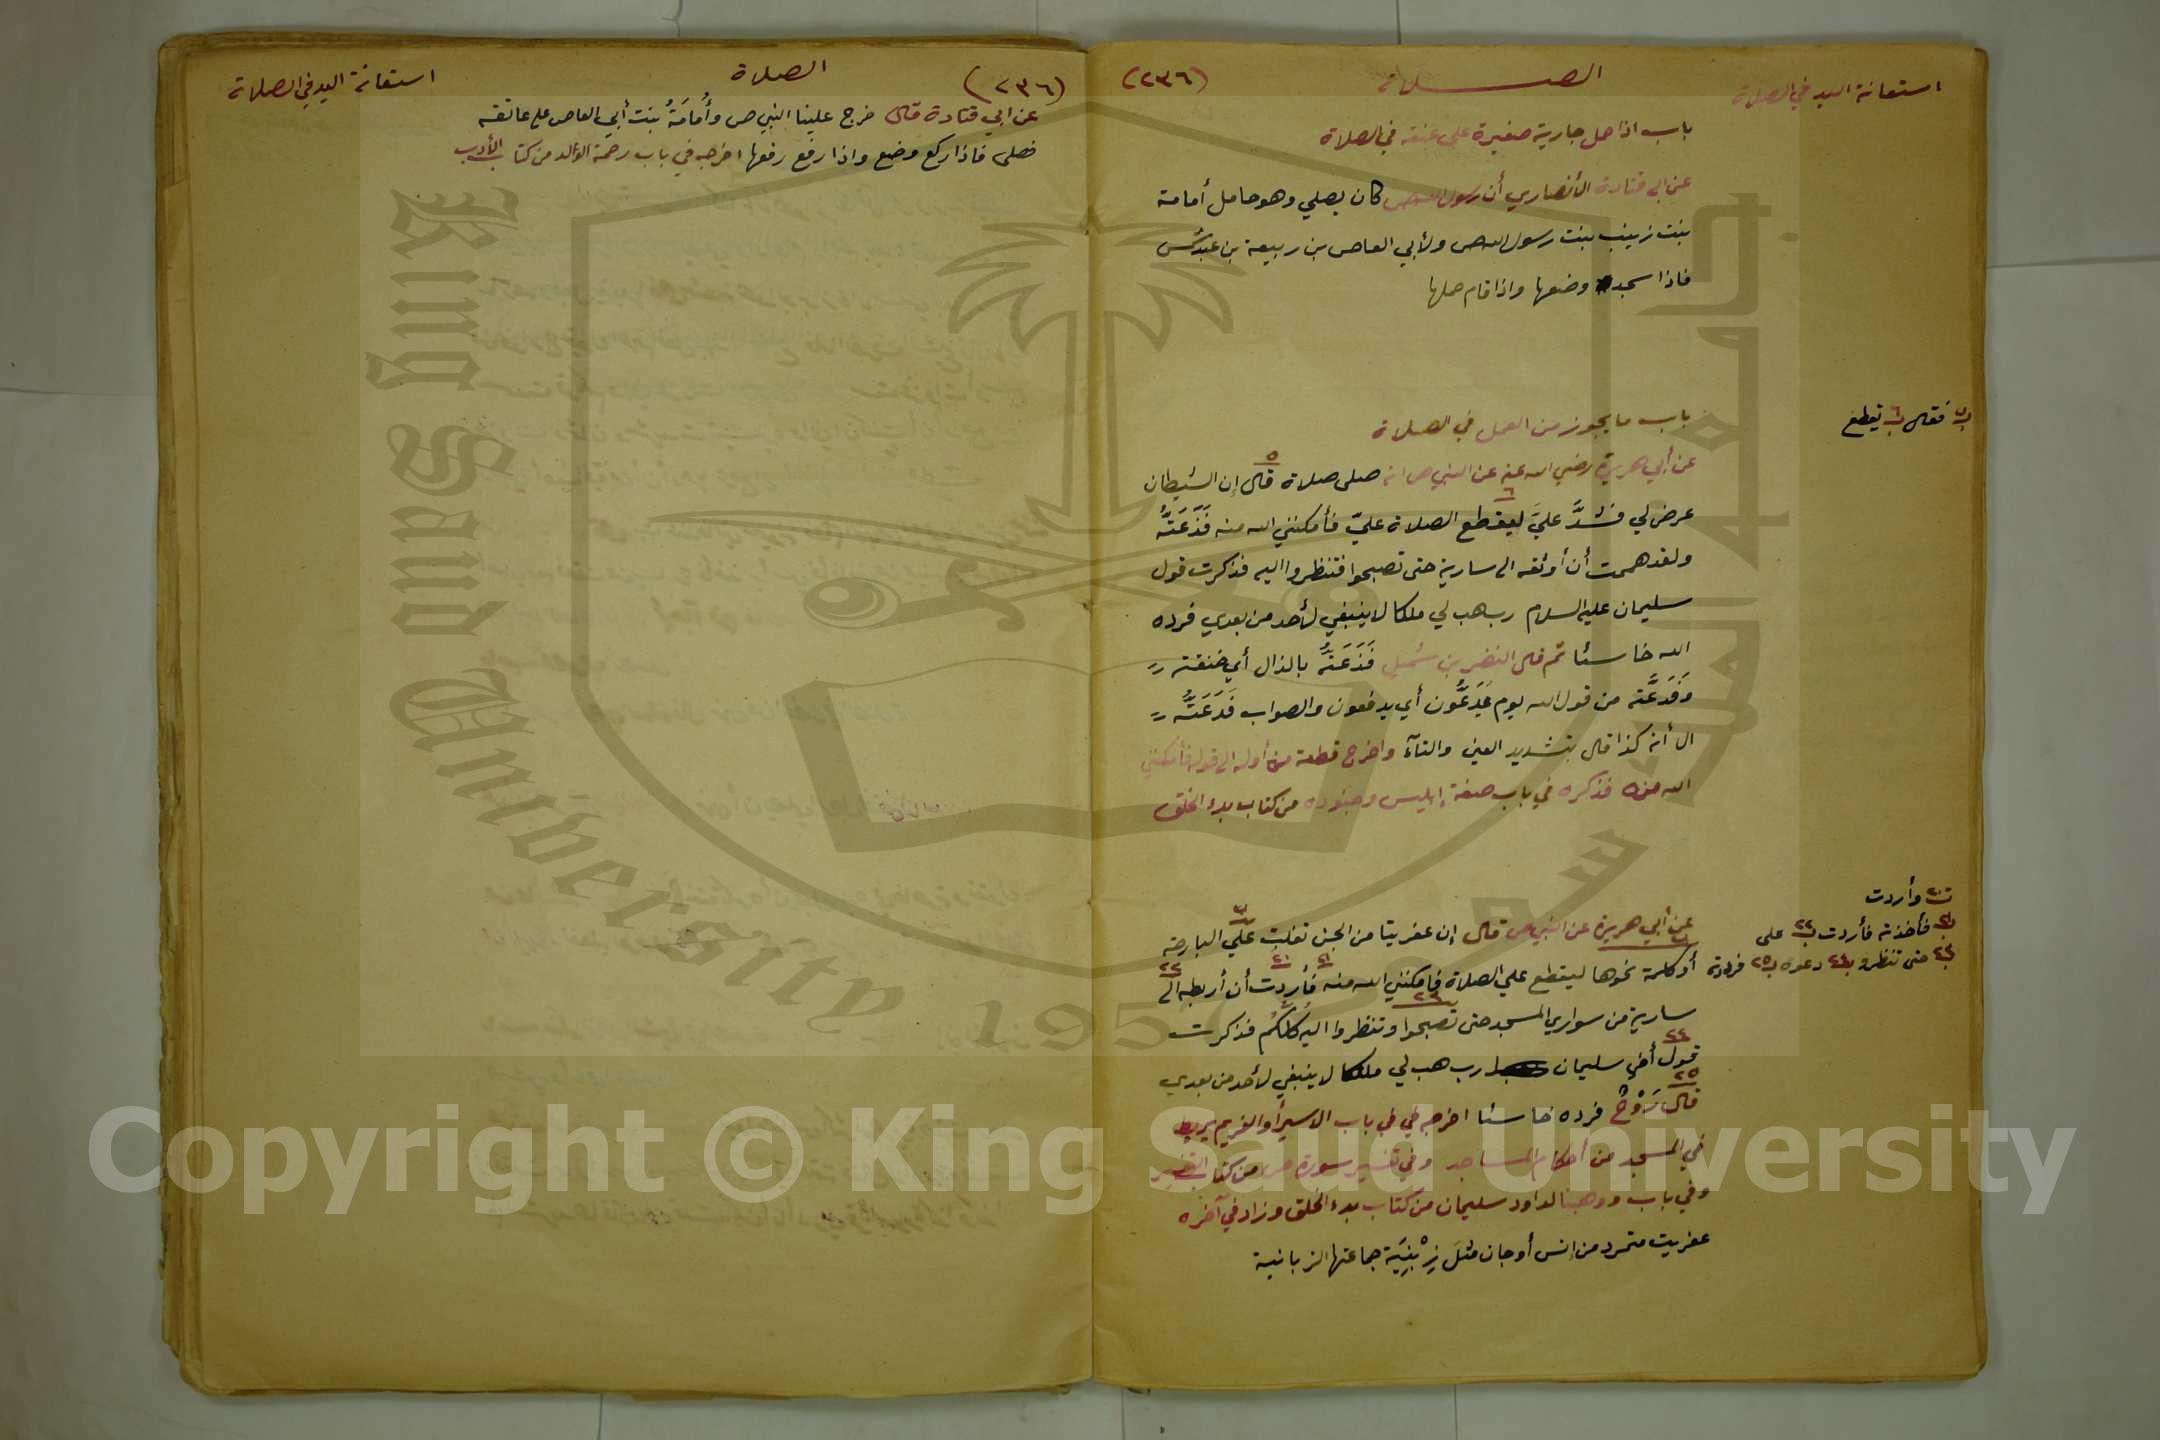 استعانة اليد في الصلاة
الصلاة
(٢٣٦)
باب اذا حمل جارية صغيرة على عنقه في الصلاة
عن ابي قتادة الأنصاري أن رسول الله ص كان يصلي وهو حامل أمامة
بنت زينب بنت رسول الله ص ولأبي العاص بن ربيعة بن عبد شمس
فاذا سجد وضعها واذا قام حملها
باب ما يجوز من العمل في الصلاة
عن أبي هريرة رضي الله عنه عن النبي ص انه صلى صلاة قال إن الشيطان
٥
عرض لي فشدَّ عليَّ ليقطع الصلاة عليّ فأمكنني الله منه فَذَعَتُّه
٦
ولقد هممت أن أوثقه الى سارية حتى تصبحوا فتنظروا اليه فذكرت قول
سليمان عليه السلام رب هب لي ملكا لا ينبغي لأحد من بعدي فرده
الله خاسئا ثم قال النضر بن شميل فَذَعَتُّه بالذال أي خنقته
وَفَدَعَّته من قول الله يوم يُدَعُّون أي يدفعون والصواب فَدَعَتُّه
الا أنه كذا قال بتشديد العين والتآء واخرج قطعة من أوله الى قوله فأمكنني
الله منه فذكره في باب صفة إبليس وجنوده من كتاب بدء الخلق
ب٥ فقال ب٦ يقطع
عن أبي هريرة عن النبي ص قال إن عفريتا من الجن تفلت عليّ البارحة
أو كلمة نحوها ليقطع علي الصلاة فامكنني الله منه فأردت أن أربطه الى
٢١ ٢١ ٢٢
سارية من سواري المسجد حتى تصبحوا وتنظروا اليه كُلُّكُم فذكرت
٢٣
قول أخي سليمان رب هب لي ملكا لا ينبغي لأحد من بعدي
٢٤
قال رَوْحٌ فرده خاسئا اخرجه في باب الاسير أو الغريم يربط
٢٥
في المسجد من أحكام المساجد وفي تفسير سورة ص من كتاب التفسير
وفي باب ووهبنا لداود سليمان من كتاب بدء الخلق وزاد في آخره
عفريت متمرد من إنس أو جان مثل زِبْنِيَة جماعتها الزبانية
وأردت
فأخذته فأردت ب٢٢ على
ب٢٣ حتى تنظروا ب٢٤ دعوة ب٢٥ فرددته
(٢٣٦)
الصلاة
استعانة اليد في الصلاة
عن ابي قتادة قال خرج علينا النبي ص وأُمَامَةُ بنت أبي العاص على عاتقه
فصلى فاذا ركع وضع واذا رفع رفعها اخرجه في باب رحمة الوالد من كتاب الأدب
King Saud University
1957
Copyright © King Saud University